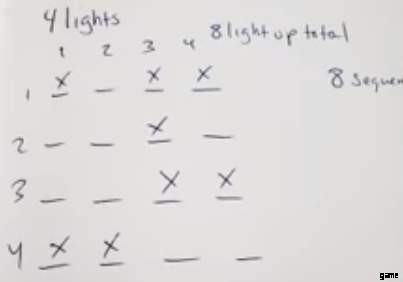 4 lights
8 light up total
1 2 3 4
8 sequen
1 X _ X X
2 _ _ X _
3 _ _ X X
4 X X _ _
game